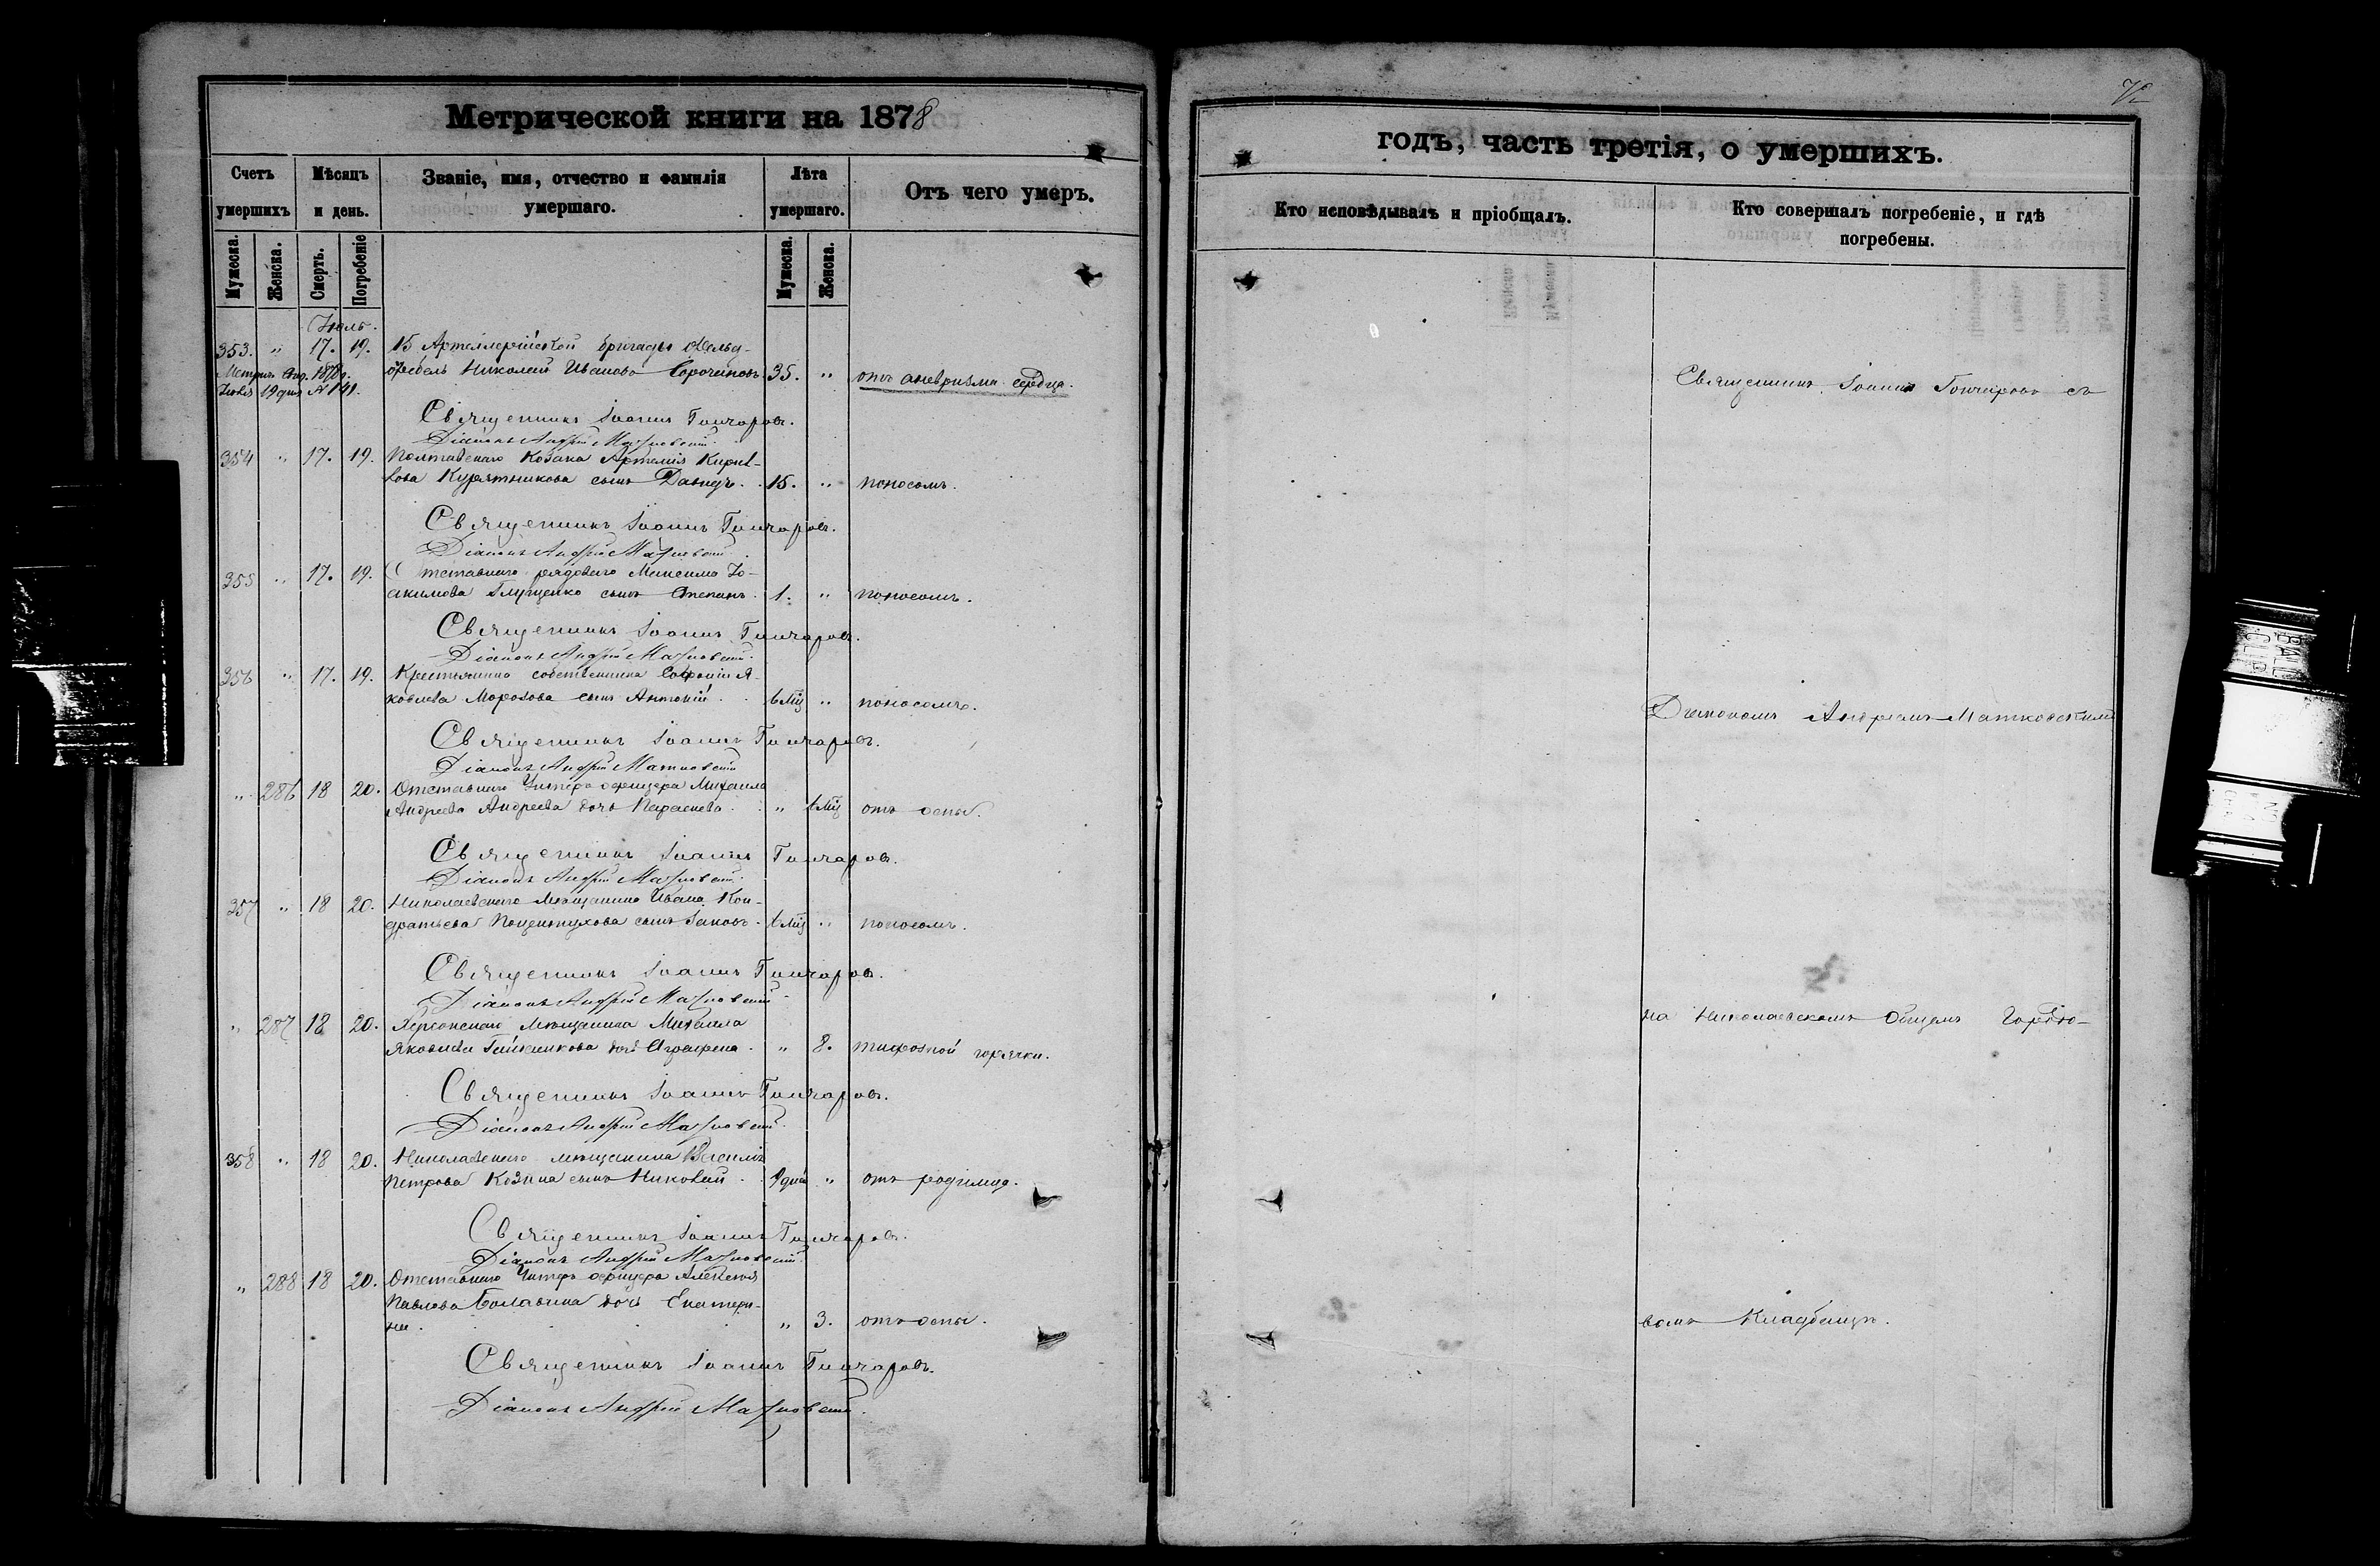 Метрической книги на 1878
Счетъ умершихъ
Мѣсяцъ и день.
Званіе, имя, отчество и фамилія умершаго.
Лѣта умершаго.
Отъ чего умеръ.
Мужеска. Женска. Смерть. Погребеніе Мужеска. Женска.
Іюль.
353. " 17. 19. 15 Артиллерійской бригады Фельд-
фебель Николай Ивановъ 35. " отъ аневризма сердца.
Іюля 19 дня № 141.
Священникъ Іоаннъ Гончаровъ.
Діаконъ Андрей Матковскій.
354 " 17. 19. Полтавскаго козака Артемія Кирил-
лова Курятникова сынъ Давидъ. 15. " поносомъ.
Священникъ Іоаннъ Гончаровъ.
Діаконъ Андрей Матковскій
355 " 17. 19. Отставного рядоваго Максима Іо-
акимова Глущенко сынъ Степанъ. 1. " поносомъ.
Священникъ Іоаннъ Гончаровъ.
Діаконъ Андрей Матковскій.
356 " 17. 19. Крестьянина собственника Софронія Я-
ковлева Морозова сынъ Антоній. 6 мцъ " поносомъ.
Священникъ Іоаннъ Гончаровъ.
Діаконъ Андрей Матковскій
" 286 18 20. Отставного Унтеръ офицера Михаила
Андреева Андреева дочь Параскева. " мцъ отъ оспы.
Священникъ Іоаннъ Гончаровъ.
Діаконъ Андрей Матковскій.
357 " 18 20. Николаевскаго мѣщанина Ивана Кон-
дратьева сынъ Іаковъ. мцъ " поносомъ.
Священникъ Іоаннъ Гончаровъ.
Діаконъ Андрей Матковскій.
" 287 18 20. Херсонскаго мѣщанина Михаила
Яковлева дочь Агрипена. " 8. тифозной горячки.
Священникъ Іоаннъ Гончаровъ.
Діаконъ Андрей Матковскій.
358 " 18 20. Николаевскаго мѣщанина Василія
Петрова Козина сынъ Николай. дней " отъ родимца.
Священникъ Іоаннъ Гончаровъ.
Діаконъ Андрей Матковскій.
" 288 18 20. Отставного Унтеръ офицера Алексія
Павлова Болавина дочь Екатери-
на. " 3. отъ оспы.
Священникъ Іоаннъ Гончаровъ.
Діаконъ Андрей Матковскій.
годъ, часть третія, о умершихъ.
Кто исповѣдывалъ и пріобщалъ.
Кто совершалъ погребеніе, и гдѣ погребены.
Священникъ Іоаннъ Гончаровъ съ
Діакономъ Андреемъ Матковскимъ
на Николаевскомъ Общемъ Градо-
вомъ Кладбищѣ.